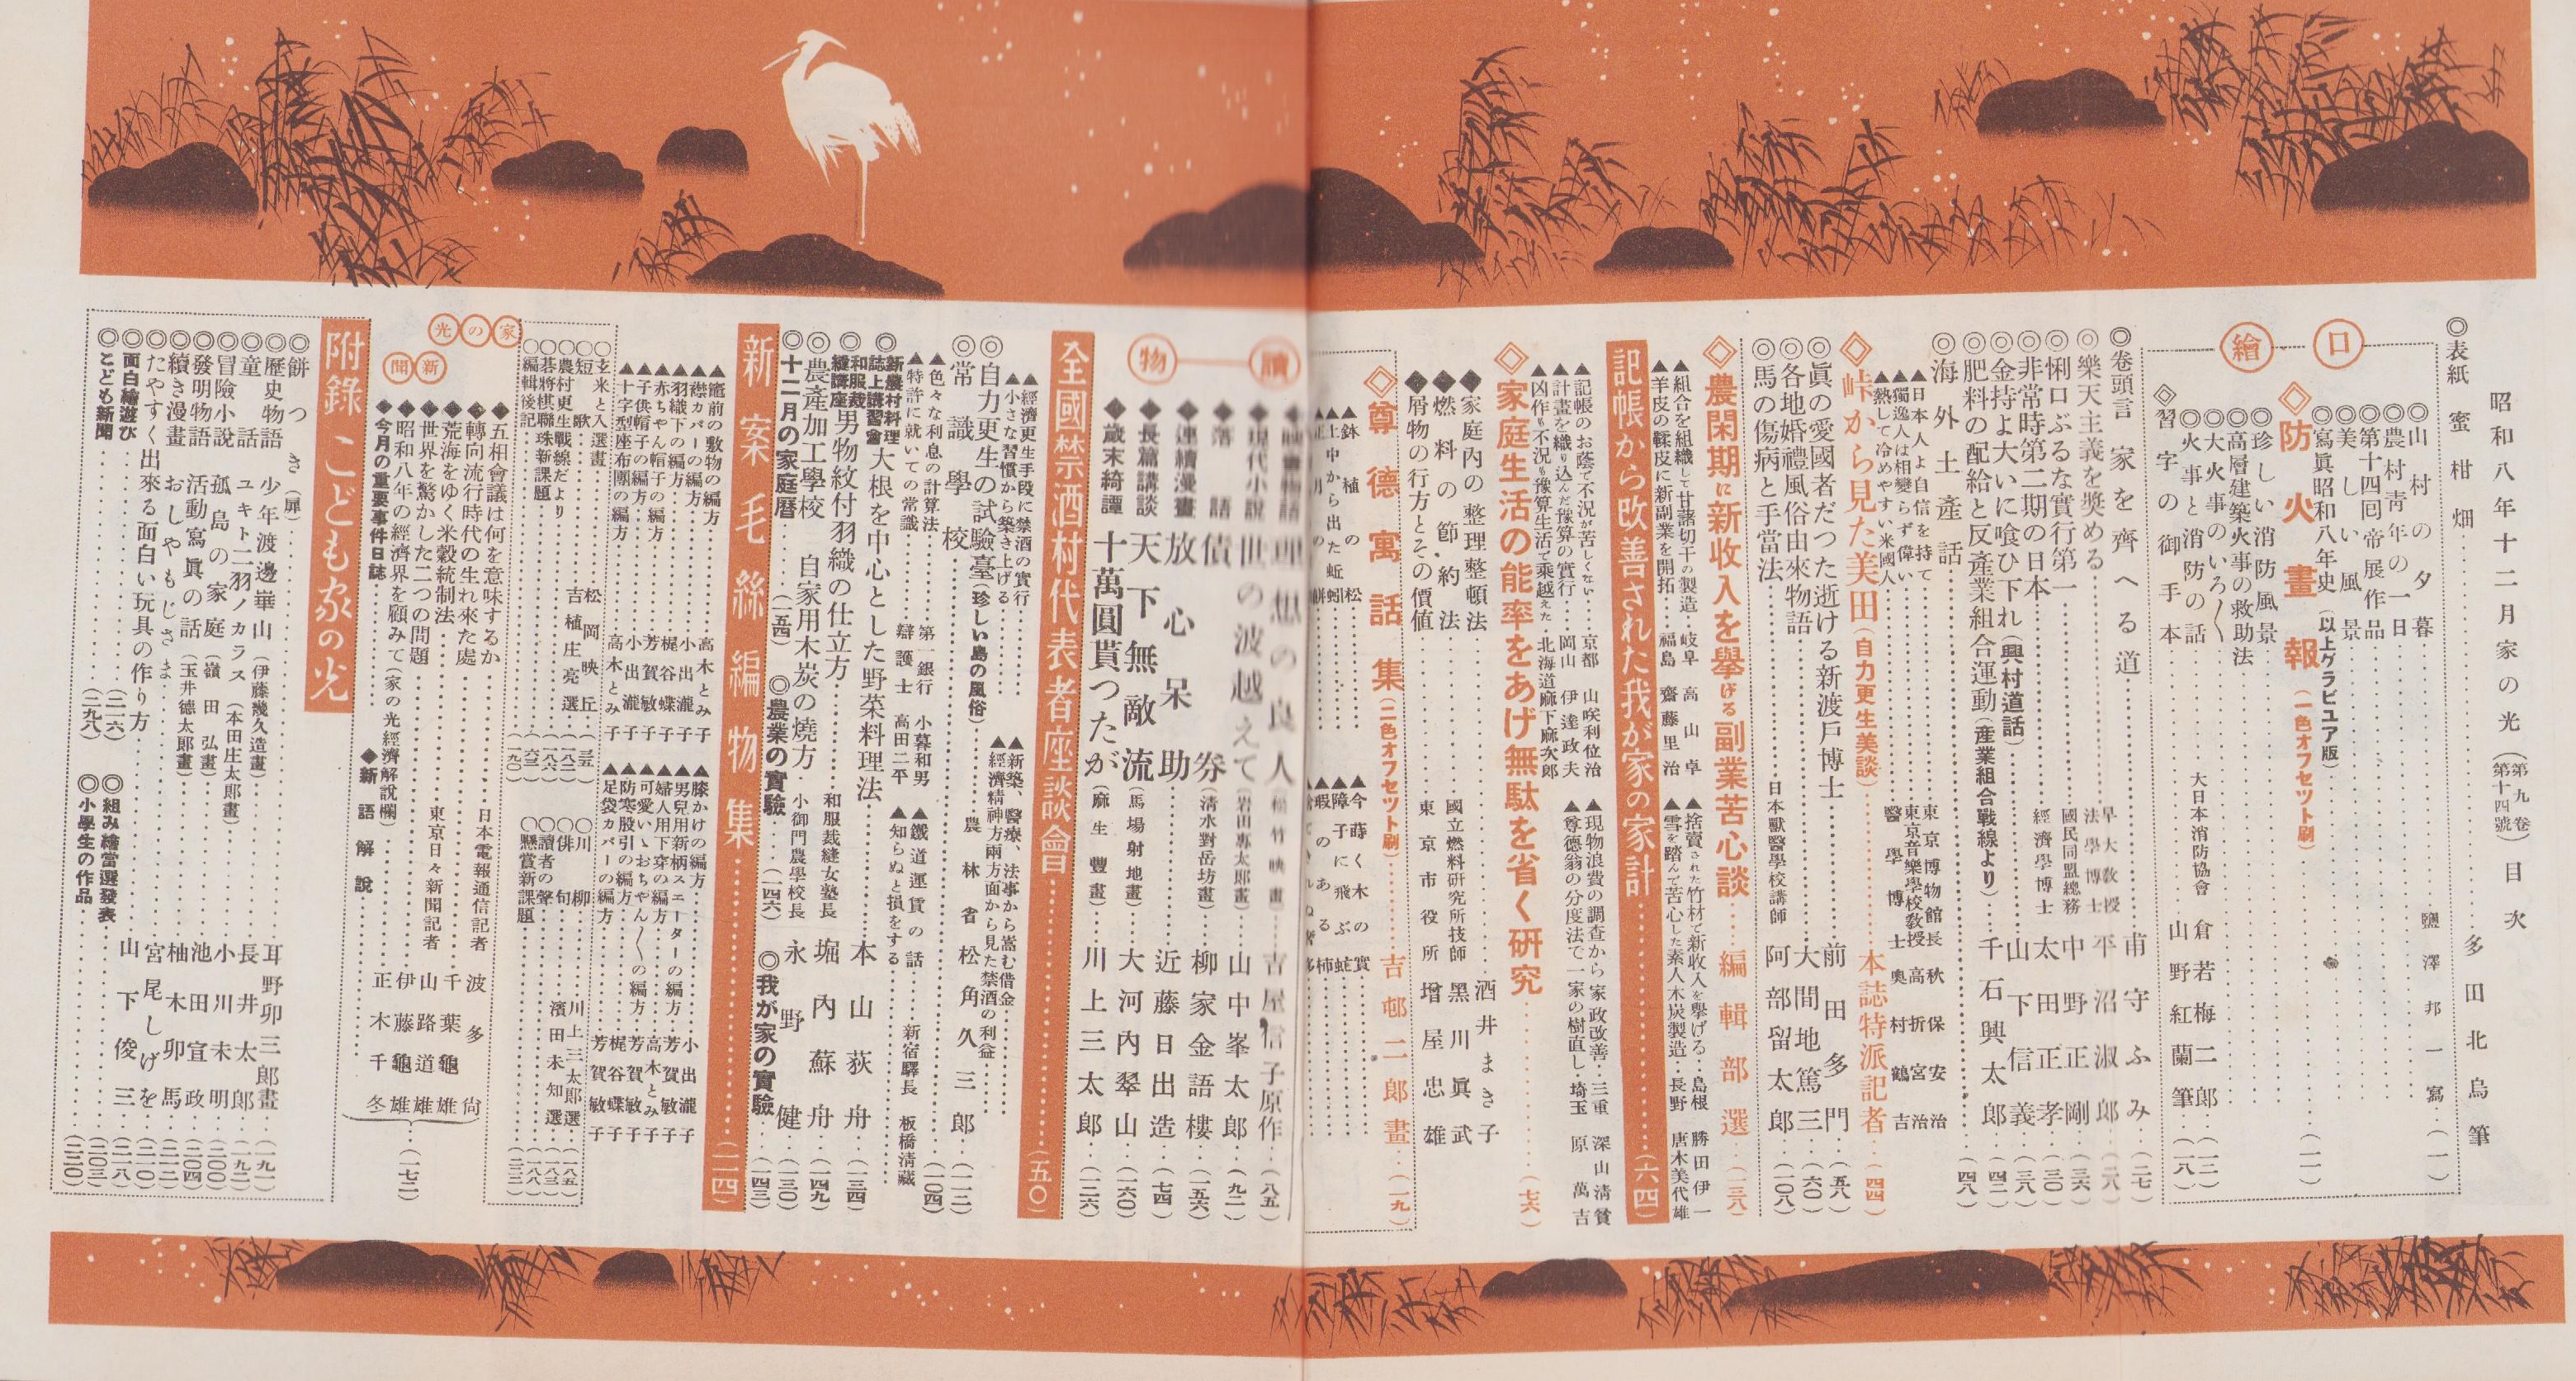 昭和八年十二月家の光(第九卷第十四號)目次
◎表紙 蜜柑畑……多田北烏筆
口繪
◎山村の夕暮……鹽澤邦一寫…(一)
◎農村靑年の一日
◎第十四回帝展作品
◎美しい風景
◎寫眞昭和八年史(以上グラビュア版)
◇防火畫報(一色オフセット刷)……(一一)
◎珍しい消防風景
◎高層建築火事の救助法
◎大火事のいろ〱
◎火事と消防の話……大日本消防協會 倉若梅二郎…(一二)
◇習字の御手本……山野紅蘭筆…(一八)
◎卷頭言 家を齊へる道……甫守ふみ…(二七)
◎樂天主義を奬める……早大教授法學博士 平沼淑郎…(二八)
◎悧口ぶるな實行第一……國民同盟總務 中野正剛…(三六)
◎非常時第二期の日本……經濟學博士 太田正孝…(三〇)
◎金持よ大いに喰ひ下れ(興村道話)……山下信義…(三八)
◎肥料の配給と反產業組合運動(產業組合戰線より)…千石興太郎…(四二)
◎海外土產話……(四八)
▲日本人よ自信を持て……東京博物館長 秋保安治
▲獨逸人は相變らず偉い……東京音樂學校敎授 高折宮治
▲熱して冷めやすい米國人……醫學博士 奧村鶴吉
◇峠から見た美田(自力更生美談)……本誌特派記者…(四四)
◎眞の愛國者だつた逝ける新渡戶博士……前田多門…(五八)
◎各地婚禮風俗由來物語……大間地篤三…(六〇)
◎馬の傷病と手當法……日本獸醫學校講師 阿部留太郎…(一〇八)
◇農閑期に新收入を擧げる副業苦心談……編輯部選…(一三八)
▲組合を組織して甘藷切干の製造…岐阜 高山卓
▲羊皮の鞣皮に新副業を開拓…福島 齋藤里治
▲捨賣された竹材で新收入を擧げる…島根 勝田伊一
▲雪を踏んで苦心した素人木炭製造…長野 唐木美代雄
記帳から改善された我が家の家計……(六四)
▲記帳のお蔭で不況が苦しくない…京都 山咲利位治
▲計畫を織り込んだ豫算の實行…岡山 伊達政夫
▲凶作も不況も豫算生活で乘越えた…北海道 麻下麻次郎
▲現物浪費の調查から家政改善…三重 深山淸貧
▲尊德翁の分度法で一家の樹直し…埼玉 原萬吉
◇家庭生活の能率をあげ無駄を省く硏究……(七六)
◆家庭內の整理整頓法……酒井まき子
◆燃料の節約法……國立燃料研究所技師 黑川眞武
◆屑物の行方とその價値……東京市役所 增屋忠雄
◇尊德寓話集(二色オフセット刷)……吉邨二郎畫…(一九)
▲鉢植の松
▲土中から出た蚯蚓
▲今蒔く木の實
▲障子に飛ぶ虻
讀物
◆現代小說 世の波越えて(岩田專太郎畫)…山中峯太郎…(九二)
◆落語 債券(淸水對岳坊畫)…柳家金語樓…(一五六)
◆連續漫畫 放心呆助……近藤日出造…(七四)
◆長篇講談 天下無敵流(馬場射地畫)…大河內翠山…(一六〇)
◆歲末綺譚 十萬圓貰つたが(麻生豐畫)…川上三太郎…(一二六)
全國禁酒村代表者座談會……(五〇)
▲經濟更生手段に禁酒の實行
▲小さな習慣から築き上げる
▲新築、醫療、法事から嵩む借金
▲經濟精神方兩方面から見た禁酒の利益
◎自力更生の試驗臺(珍しい島の風俗)……農林省 松角久三郎…(一一二)
◎常識學校……(一〇四)
▲色々な利息の計算法……第一銀行 小暮和男
▲特許に就いての常識……辯護士 高田二平
▲鐵道運賃の話
▲知らぬと損をする……新宿驛長 板橋淸藏
◎新農村料理誌上講習會 大根を中心とした野菜料理法……本山荻舟…(一三四)
◎和服裁縫講座 男物紋付羽織の仕立方……和服裁縫女塾長 堀內蘇舟…(一四九)
◎農產加工學校 自家用木炭の燒方…小御門農學校長 永野健…(一三〇)
◎十二月の家庭曆……(一五四) ◎農業の實驗……(一四六) ◎我が家の實驗…(一四三)
新案毛絲編物集……(一一四)
▲竈前の敷物の編方……高木とみ子
▲襟カバーの編方……小出瀧子
▲羽織下の編方……梶谷蝶子
▲赤ちやん帽子の編方…芳賀敏子
▲子供帽子の編方……小出瀧子
▲十字型座布團の編方……高木とみ子
▲膝かけの編方……小出瀧子
▲男兒用新柄スエーターの編方…芳賀敏子
▲婦人用下穿の編方…高木とみ子
▲可愛いゝおちやん〱の編方…芳賀敏子
▲防寒股引の編方……梶谷蝶子
▲足袋カバーの編方……芳賀敏子
○玄米と人選畫……松岡映丘…
○短歌……吉植庄亮選…(一八二)
○農村更生戰線だより……(一八六)
○碁將棋聯珠新課題……
○編輯後記……(一九〇)
○川柳……川上三太郎選…(一八五)
○俳句……濱田未知選…(一八三)
○讀者の聲……(一八八)
○懸賞新課題……
家の光新聞
◆五相會議は何を意味するか……日本電報通信記者 波多尙
◆轉向流行時代の生れ來た處……千葉龜雄
◆荒海をゆく米穀統制法……東京日々新聞記者 山路道雄
◆世界を驚かした二つの問題……伊藤龜雄
◆昭和八年の經濟界を顧みて(家の光經濟解說欄)…正木千冬
◆今月の重要事件日誌……◆新語解說……(一七二)
附錄 こども家の光
◎餠つき(扉)……耳野卯三郎畫…(一九一)
◎歷史物語 少年渡邊崋山(伊藤幾久造畫)…長井太郎…(一九二)
◎童話 ユキト二羽ノカラス(本田庄太郎畫)…小川未明…(二〇〇)
◎冒險小說 孤島の家庭(嶺田弘畫)…池田宣政…(二〇四)
◎發明物語 活動寫眞の話(玉井德太郎畫)…柚木卯馬…(二一二)
◎續き漫畫 おしやもじさま……宮尾しげを…(二一〇)
◎たやすく出來る面白い玩具の作り方……山下俊三…(二一八)
◎面白繪遊び……(二一六) ◎組み繪當選發表……(二〇三)
◎こども新聞……(二九八) ◎小學生の作品……(二二〇)